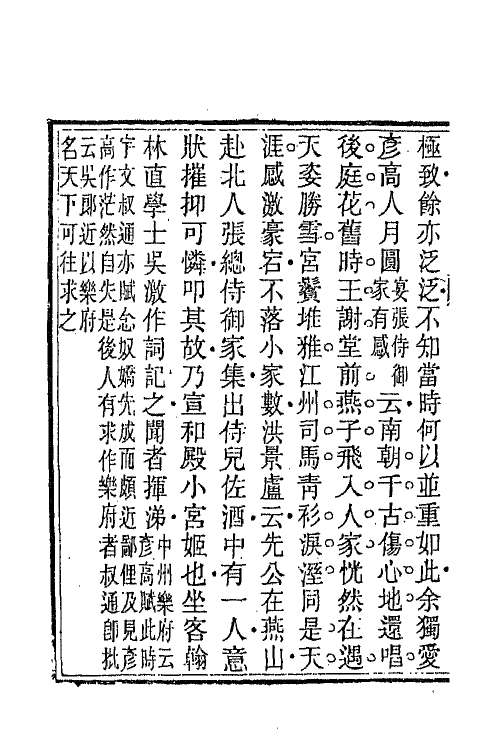 極致餘亦泛泛不知當時何以並重如此余獨愛
彥高人月圓宴張侍御家有感云南朝千古傷心地還唱
後庭花舊時王謝堂前燕子飛入人家恍然在遇
天姿勝雪宮鬢堆雅江州司馬靑衫淚溼同是天
涯感激豪宕不落小家數洪景盧云先公在燕山
赴北人張總侍御家集出侍兒佐酒中有一人意
狀摧抑可憐叩其故乃宣和殿小宮姬也坐客翰
林直學士吳激作詞記之聞者揮涕中州樂府云彥高賦此時
宇文叔通亦賦念奴嬌先成而頗近鄙俚及見彥高作茫然自失是後人有求作樂府者叔通卽批
云吳郞近以樂府名天下可往求之